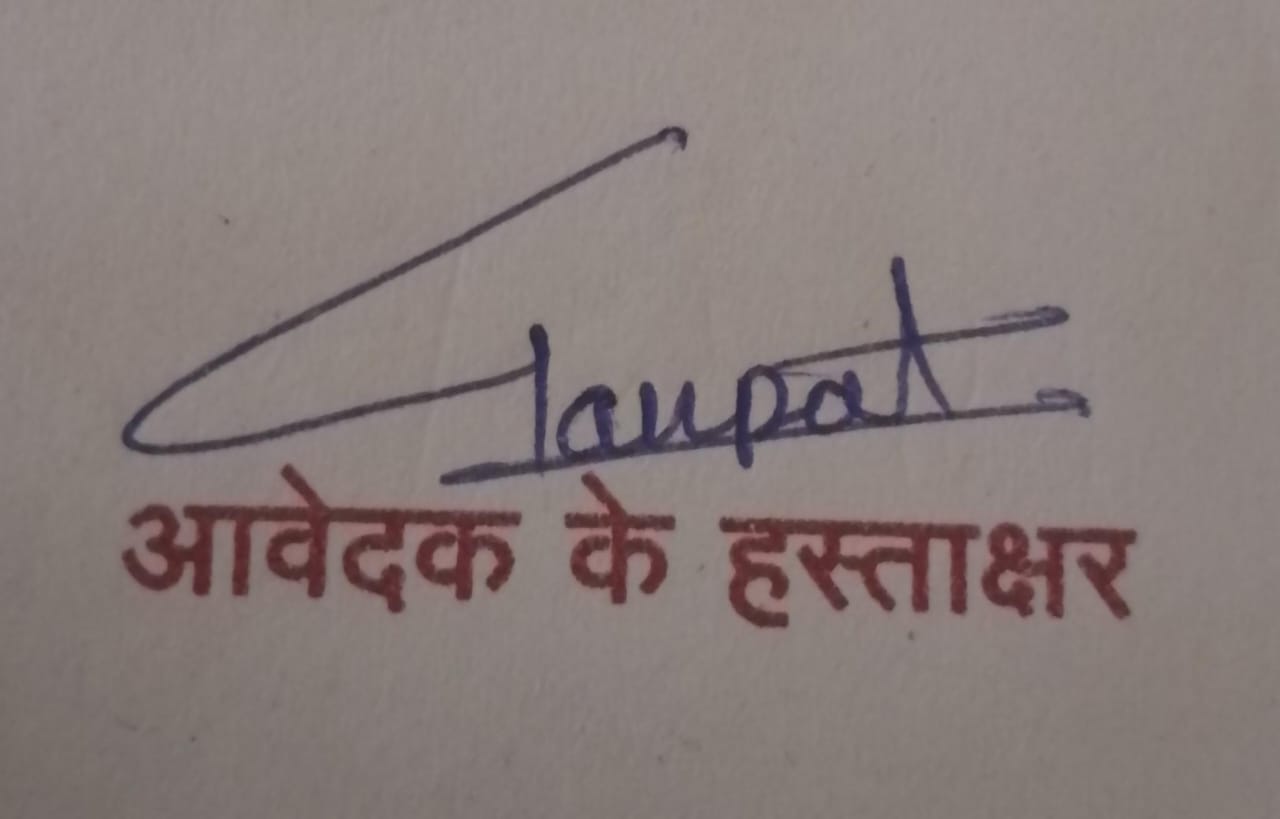 Ganpat
आवेदक के हस्ताक्षर